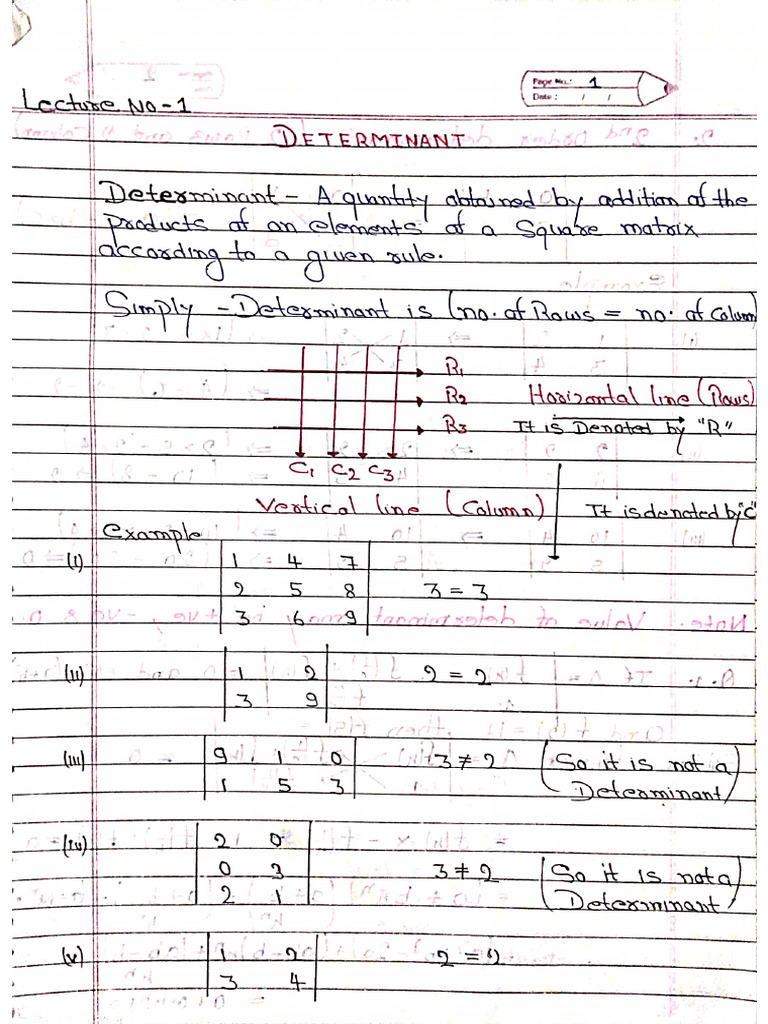 Page No.: 1
Date: / /
Lecture No-1
DETERMINANT
Determinant - A quantity obtained by addition of the
products of an elements of a square matrix
according to a given rule.
Simply - Determinant is (no. of Rows = no. of Column)
R1
R2 Horizontal line (Rows)
R3 It is Denoted by "R"
C1 C2 C3
Vertical line (Column) It is denoted by "C"
Example
(i) 1 4 7
2 5 8 3 = 3
3 6 9
(ii) 1 2 2 = 2
3 9
(iii) 9 1 0 3 ≠ 2 (So it is not a
1 5 3 Determinant)
(iv) 2 0
0 3 3 ≠ 2 (So it is not a
2 1 Determinant)
(v) 1 2 2 = 2
3 4